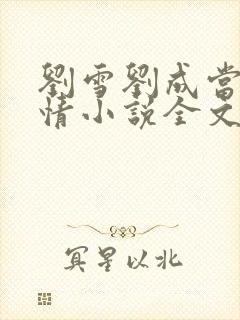 劉雪劉成當
情小說全文
冥星以北